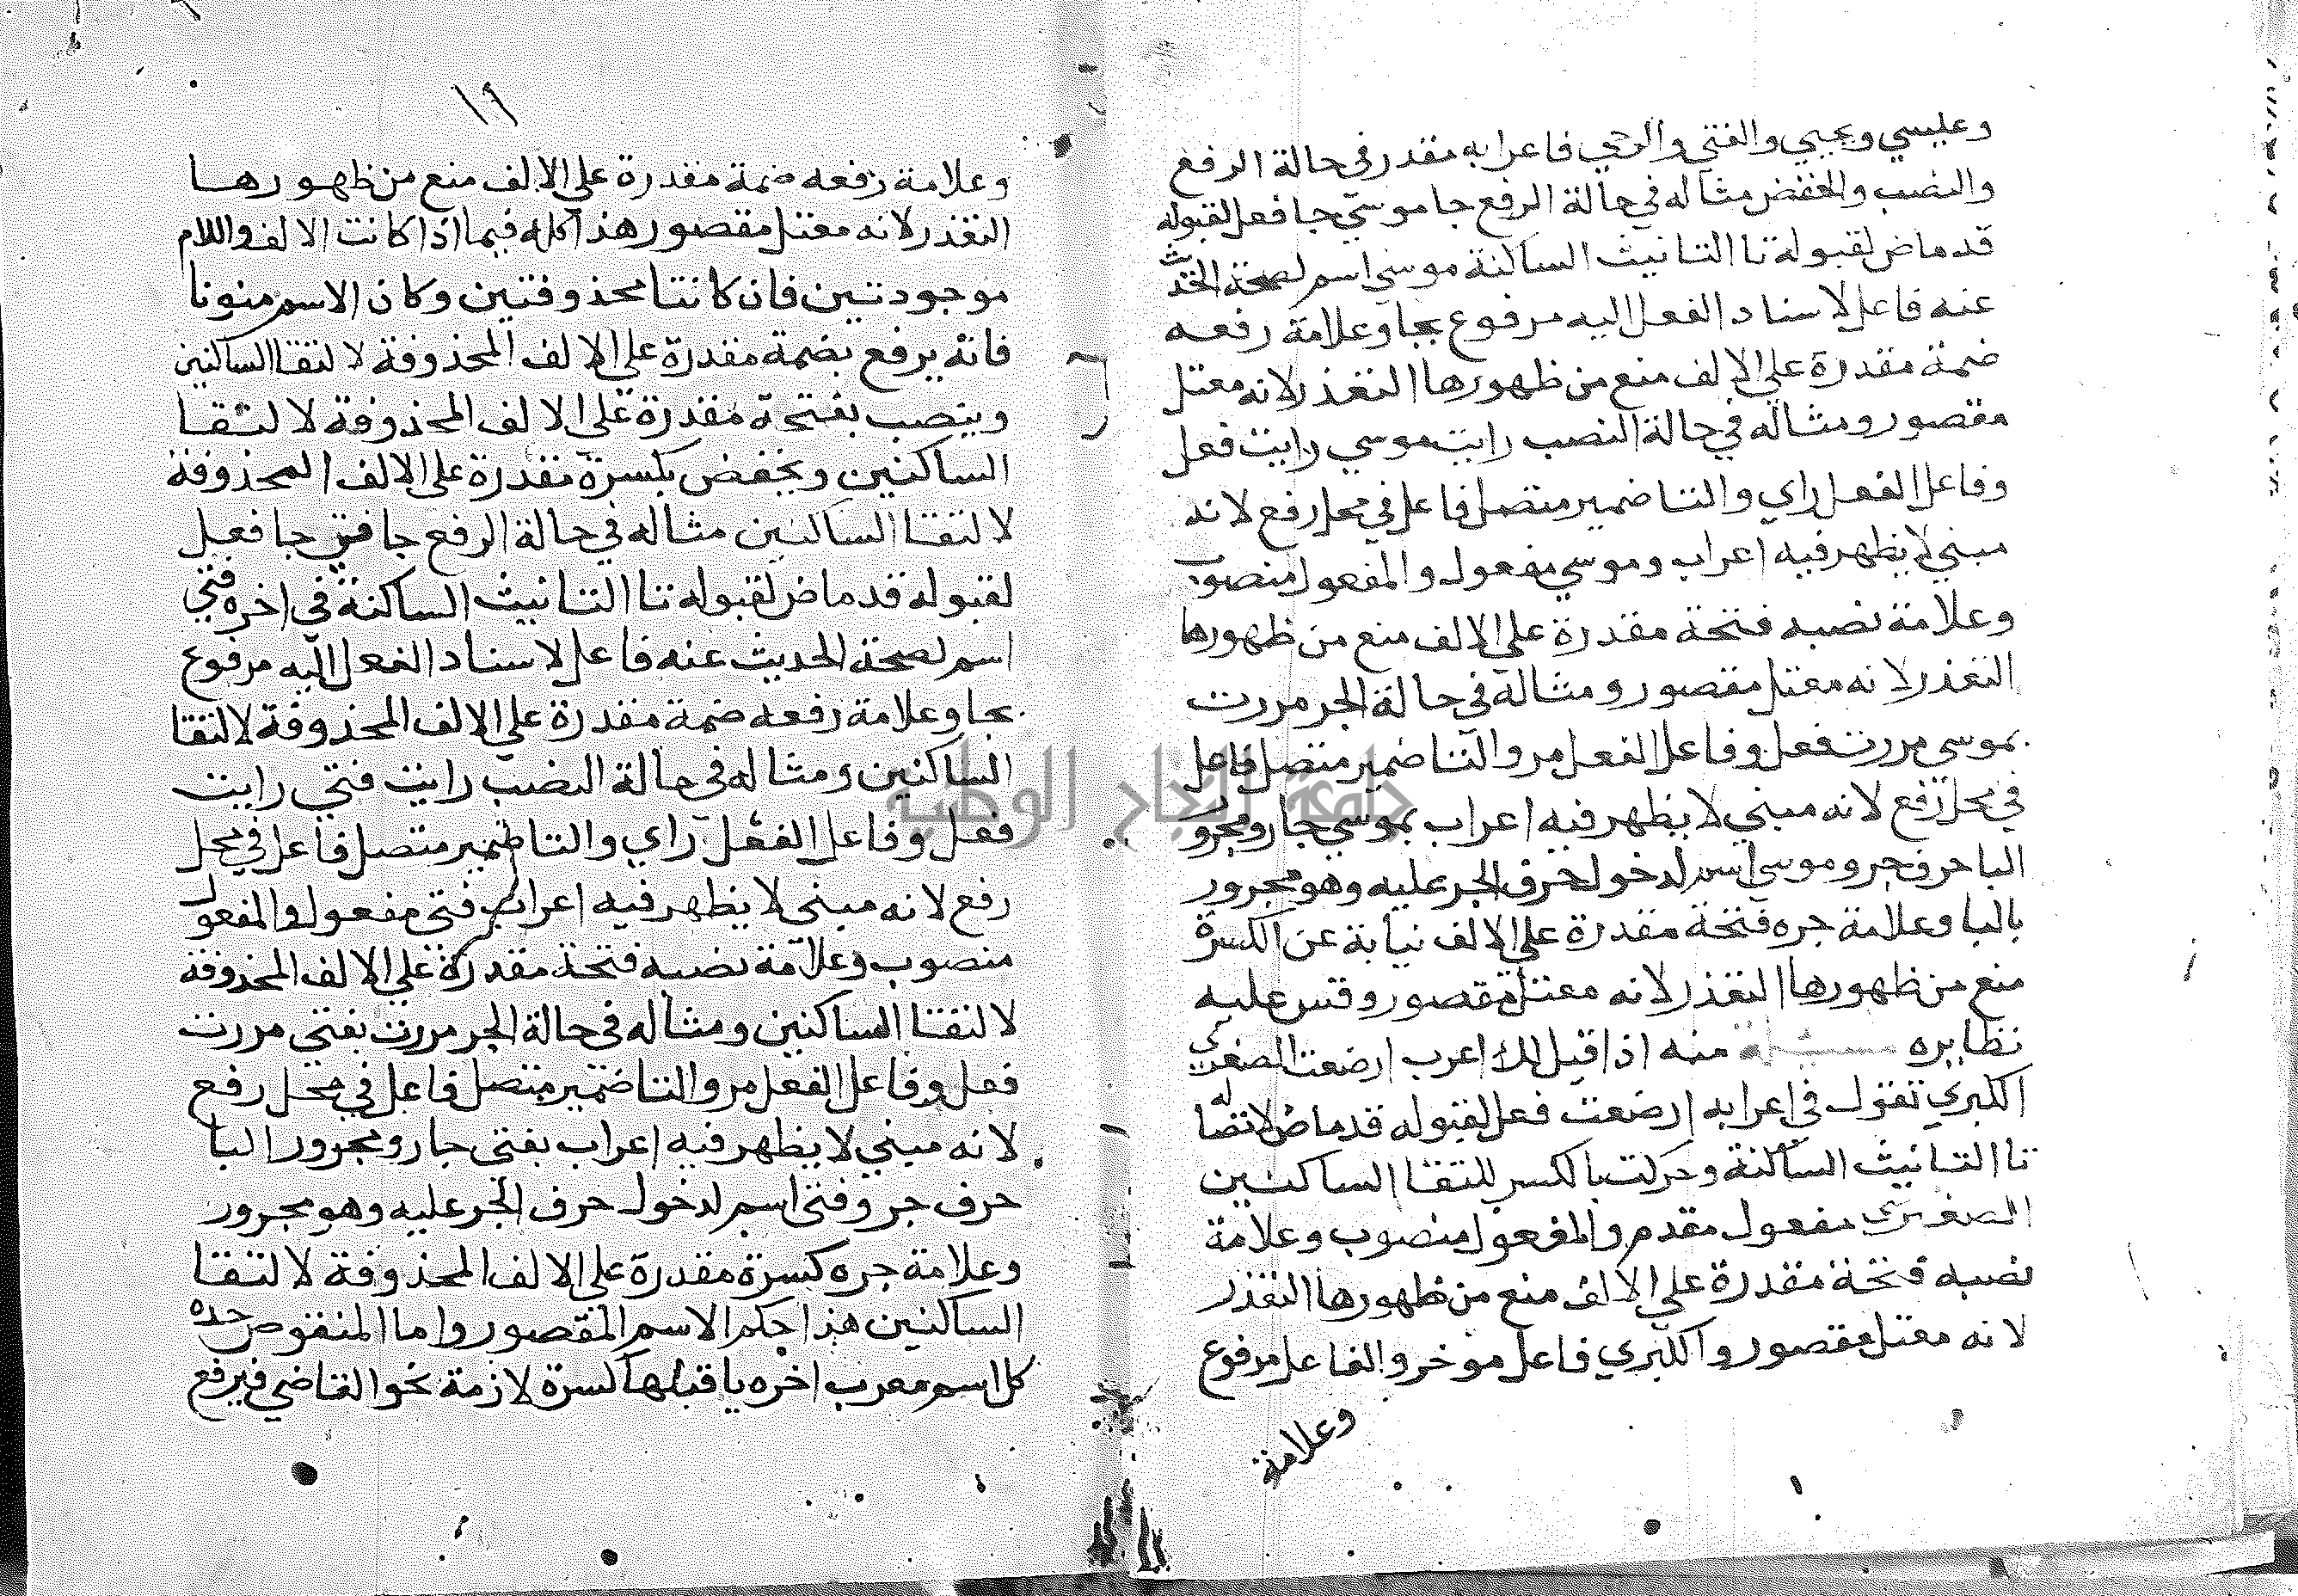 وعليسي ويحيي والفتي والرحي فاعرابه مقدر في حالة الرفع
والنصب والخفض مثاله في حالة الرفع جا موسي جا فعل لقبوله
قد ماض لقبوله تا التانيث الساكنة موسي اسم لصحة الحديث
عنه فاعل لاسناد الفعل اليه مرفوع بجا وعلامة رفعه
ضمة مقدرة علي الالف منع من ظهورها التعذر لانه معتل
مقصور ومثاله في حالة النصب رايت موسي رايت فعل
وفاعل الفعل راي والتا ضمير متصل فاعل في محل رفع لانه
مبني لا يظهر فيه اعراب وموسي مفعول والمفعول منصوب
وعلامة نصبه فتحة مقدرة علي الالف منع من ظهورها
التعذر لانه معتل مقصور ومثاله في حالة الجر مررت
بموسي مررت فعل وفاعل الفعل مر والتا ضمير متصل فاعل
في محل رفع لانه مبني لا يظهر فيه اعراب بموسي جار ومجرور
البا حرف جر وموسي اسم لدخول حرف الجر عليه وهو مجرور
بالبا وعلامة جره فتحة مقدرة علي الالف نيابة عن الكسرة
منع من ظهورها التعذر لانه معتل مقصور وقس عليه
نظايره مسئلة منه اذا قيل لك اعرب ارضعت الصغري
الكبري تقول في اعرابه ارضعت فعل لقبوله قد ماض لاتصاله
تا التانيث الساكنة وحركت بالكسر للتقا الساكنين
الصغري مفعول مقدم والمفعول منصوب وعلامة
نصبه فتحة مقدرة علي الالف منع من ظهورها التعذر
لانه معتل مقصور والكبري فاعل موخر والفاعل مرفوع
وعلامة
١٦
وعلامة رفعه ضمة مقدرة علي الالف منع من ظهورها
التعذر لانه معتل مقصور هذا كله فيما اذا كانت الالف واللام
موجودتين فان كانتا محذوفتين وكان الاسم منونا
فانه يرفع بضمة مقدرة علي الالف المحذوفة لالتقا الساكنين
وينصب بفتحة مقدرة علي الالف المحذوفة لالتقا
الساكنين ويخفض بكسرة مقدرة علي الالف المحذوفة
لالتقا الساكنين مثاله في حالة الرفع جا فتي جا فعل
لقبوله قد ماض لقبوله تا التانيث الساكنة في اخره فتي
اسم لصحة الحديث عنه فاعل لاسناد الفعل اليه مرفوع
بجا وعلامة رفعه ضمة مقدرة علي الالف المحذوفة لالتقا
الساكنين ومثاله في حالة النصب رايت فتي رايت
فعل وفاعل الفعل راي والتا ضمير متصل فاعل في محل
رفع لانه مبني لا يظهر فيه اعراب فتي مفعول والمفعول
منصوب وعلامة نصبه فتحة مقدرة علي الالف المحذوفة
لالتقا الساكنين ومثاله في حالة الجر مررت بفتي مررت
فعل وفاعل الفعل مر والتا ضمير متصل فاعل في محل رفع
لانه مبني لا يظهر فيه اعراب بفتي جار ومجرور البا
حرف جر وفتي اسم لدخول حرف الجر عليه وهو مجرور
وعلامة جره كسرة مقدرة علي الالف المحذوفة لالتقا
الساكنين هذا حكم الاسم المقصور واما المنقوص حده
كل اسم معرب اخره يا قبلها كسرة لازمة نحو القاضي فيرفع
جامعة النجاح الوطنية